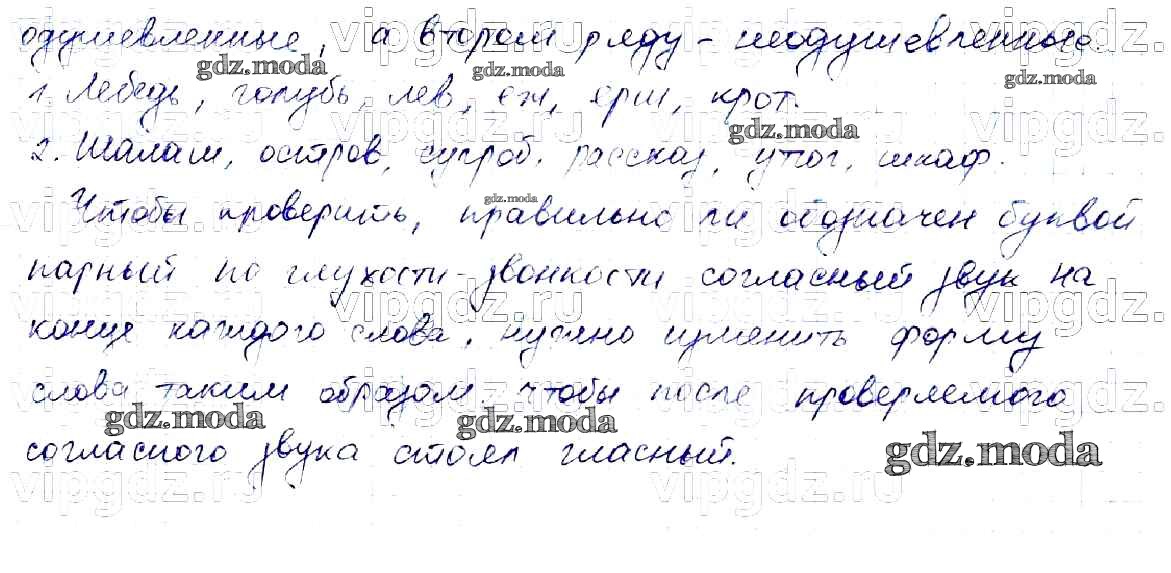 одушевленные, а втором ряду - неодушевленные.
1. Лебедь, голубь, лев, еж, ерш, крот.
2. Шалаш, остров, сугроб, рассказ, утюг, шкаф.
Чтобы проверить, правильно ли обозначен буквой
парный по глухости-звонкости согласный звук на
конце каждого слова, нужно изменить форму
слова таким образом, чтобы после проверяемого
согласного звука стоял гласный.